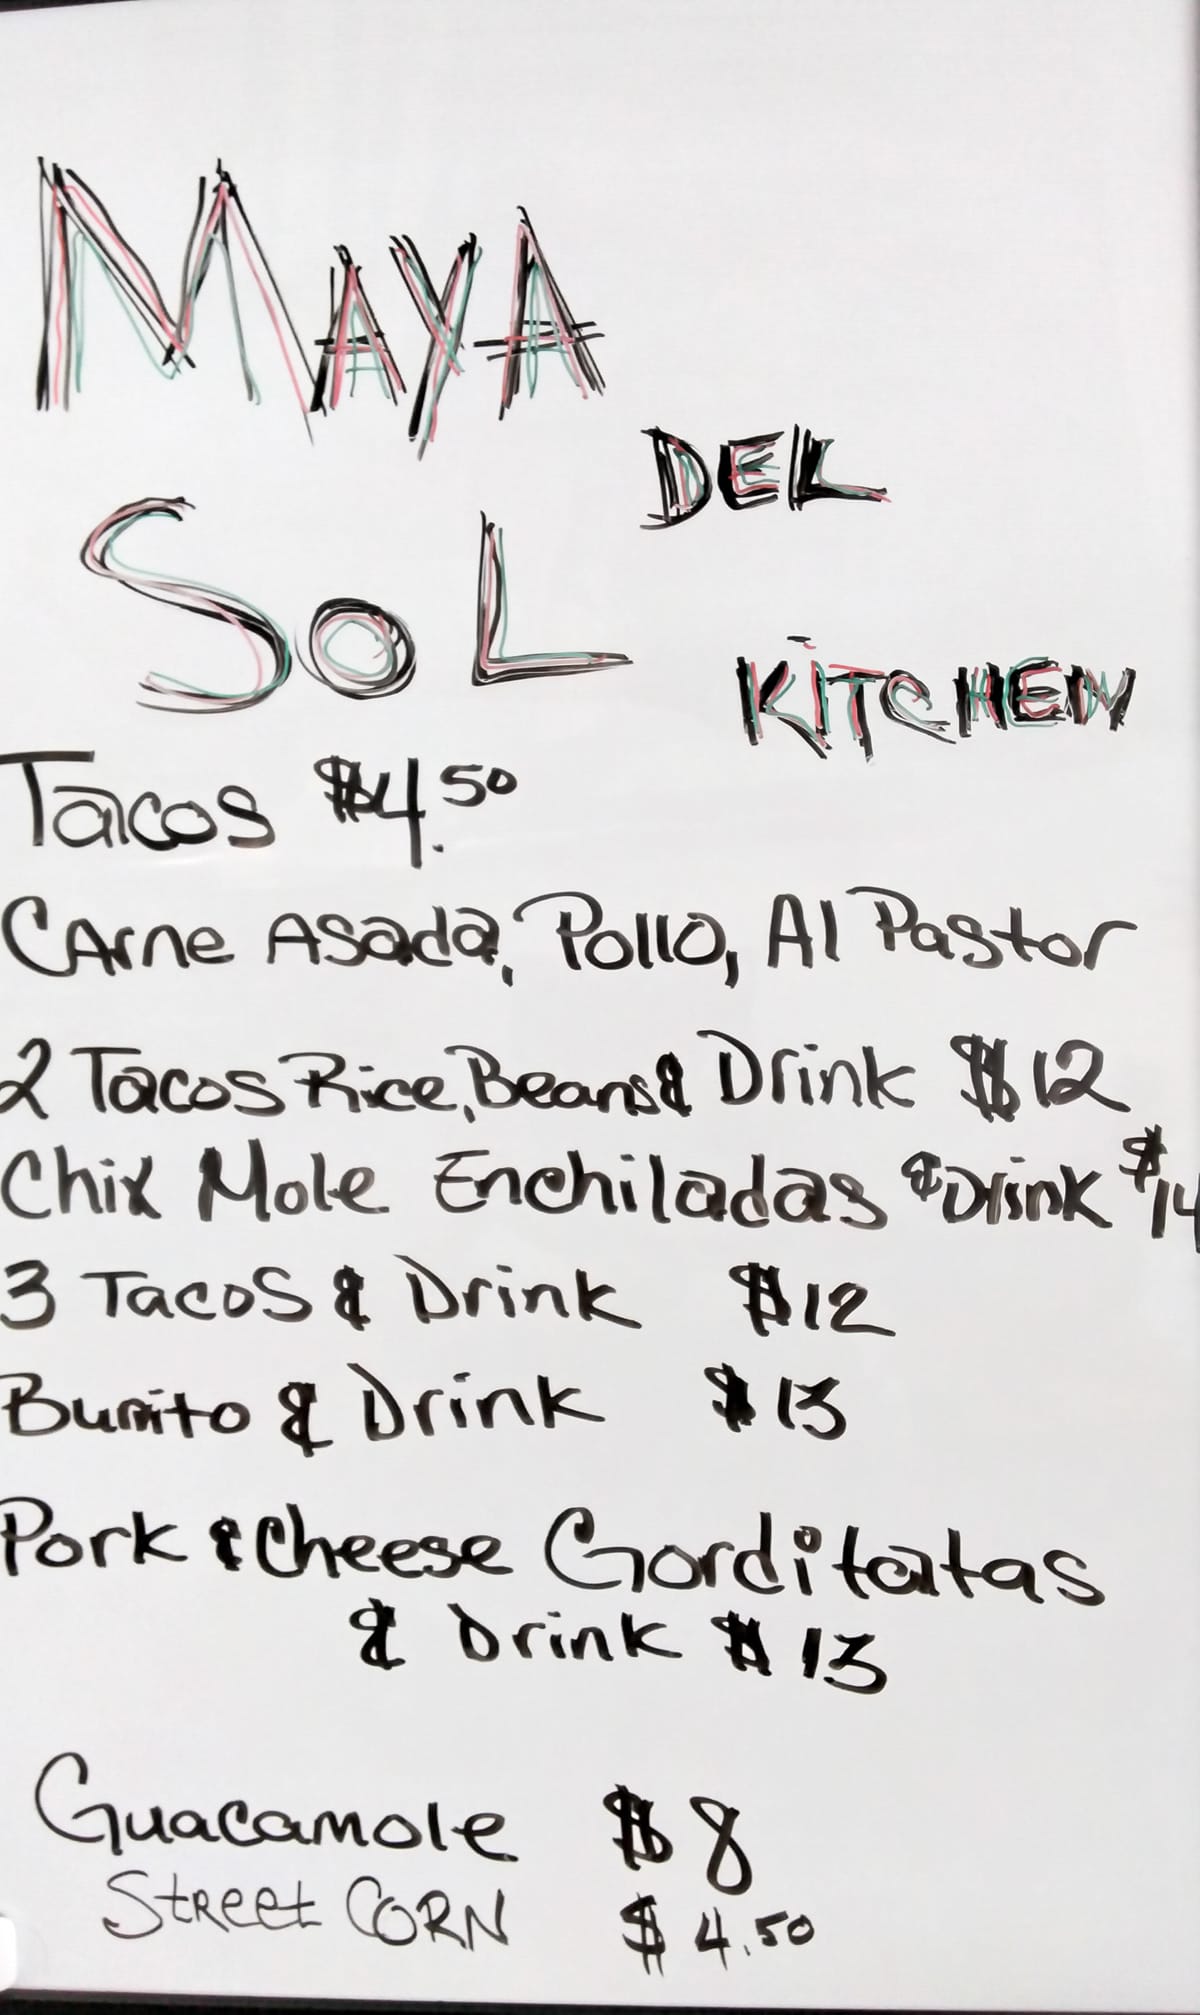 MAYA
DEL
SOL
KITCHEN
Tacos $4.50
Carne Asada, Pollo, Al Pastor
2 Tacos Rice, Beans & Drink $12
Chix Mole Enchiladas & Drink $14
3 Tacos & Drink $12
Burrito & Drink $13
Pork & Cheese Gorditatas
& Drink $13
Guacamole $8
Street CORN $4.50